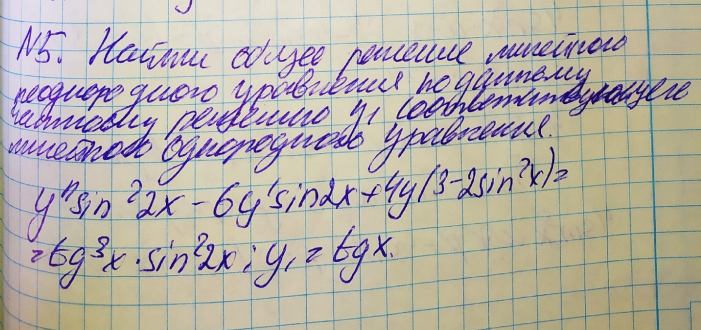 N5. Найти общее решение линейного
неоднородного уравнения по данному
частному решению y₁ соответствующего
линейного однородного уравнения.
yⁿ sin²2x - 6y' sin2x + 4y(3-2sin²x)=
= tg³x · sin²2x; y₁ = tgx.